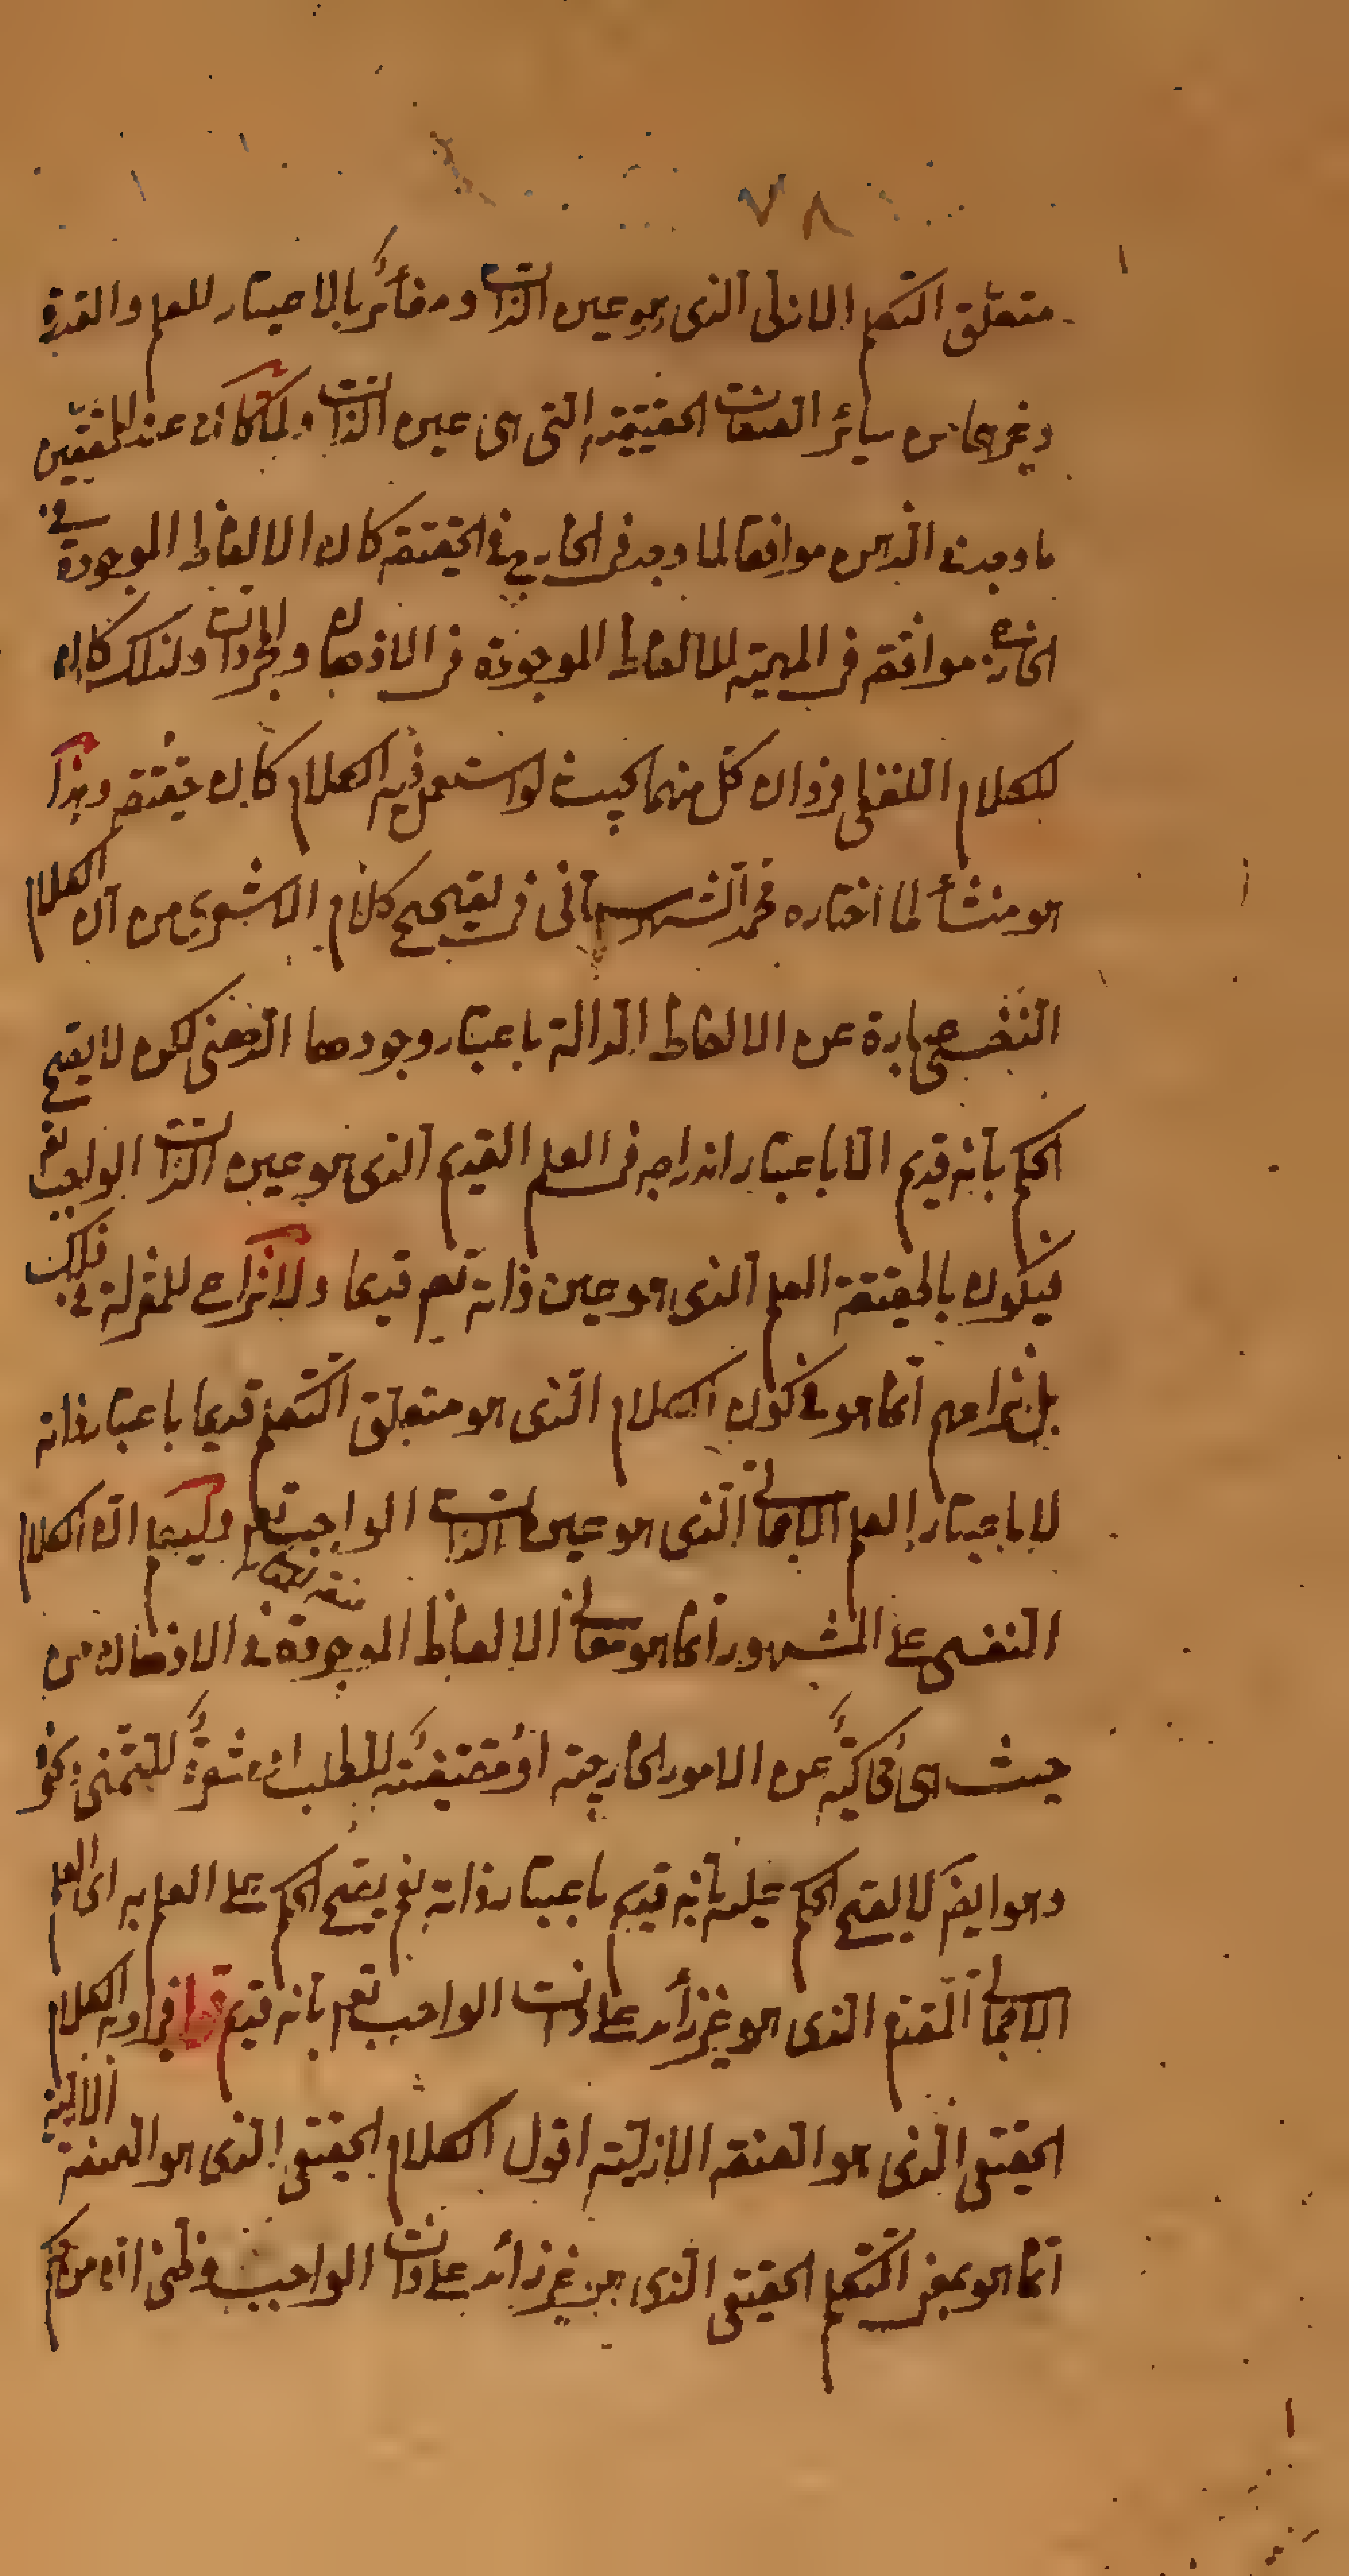 ٧٨
متعلق التكلم الازلى الذى هو عين الذات ومغائر بالاعتبار للعلم والقدرة
وغيرهما من سائر الصفات الحقيقية التى هى عين الذات ولما كان عند المحققين
ما وجد فى الذهن موافقا لما وجد فى الخارج فى الحقيقة كان الالفاظ الموجودة فى
الخارج موافقة فى المهية للالفاظ الموجودة فى الاذهان والمجردات ولذلك كان
للكلام اللفظى فردان كل منهما بحيث لو استعمل فيه الكلام كان حقيقة وهذا
هو منشأ لما اختاره محمد الشهرستانى فى تصحيح كلام الاشعرى من ان الكلام
النفسى عبارة عن الالفاظ الدالة باعتبار وجودها الذهنى لكن لا يصح
الحكم بانه قديم الا باعتبار اندراجه فى العلم القديم الذى هو عين الذات الواجب تعم
فيكون بالحقيقة العلم الذى هو عين ذاته تعم قديما ولا نزاع للمعتزلة فى ذلك
بل نزاعهم انما هو فى كون الكلام الذى هو متعلق التكلم قديما باعتبار ذاته
لا باعتبار العلم الاجمالى الذى هو عين الذات الواجب تعم وليعلم ان الكلام
النفسى على المشهور انما هو معانى الالفاظ الموجودة فى الاذهان من
حيث هى محاكية عن الامور الخارجية او مقتضية للطلب او مشعرة للتمنى ونحو
وهو ايضا لا يصح الحكم عليه بانه قديم باعتبار ذاته نعم يصح الحكم على العلم به اى العلم
الاجمالى المقدم الذى هو غير زائد على ذات الواجب تعم بانه قديم قوله افراد به الكلام
الحقيقى الذى هو الصفة الازلية اقول الكلام الحقيقى الذى هو الصفة الازلية
انما هو بمعنى التكلم الحقيقى الذى هو غير زائد على ذات الواجب وظنى ان من